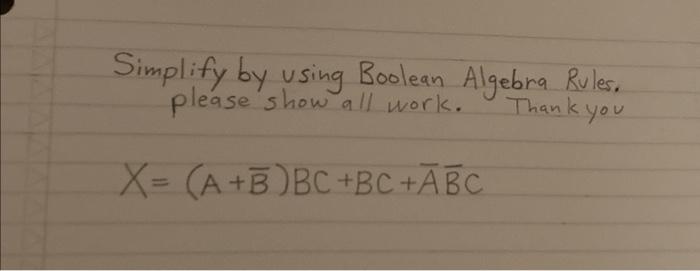 Simplify by using Boolean Algebra Rules.
please show all work. Thank you
X = (A + B̅)BC + BC + A̅ B̅ C